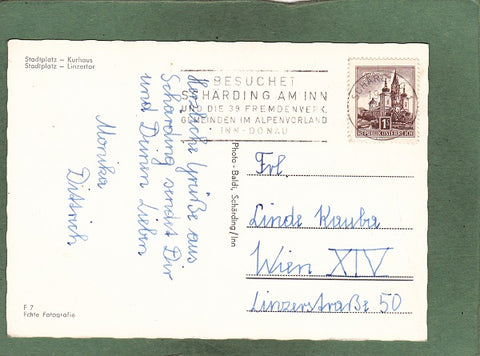 Stadtplatz – Kurhaus
Stadtplatz – Linzertor
BESUCHET
SCHÄRDING AM INN
UND DIE 39 FREMDENVERK.
GEMEINDEN IM ALPENVORLAND
INN-DONAU
REPUBLIK ÖSTERREICH
1S
Herzliche Grüße aus
Schärding sendet Dir
und Deinen Lieben
Monika
Dittrich
Photo - Baldi, Schärding/Inn
Frl.
Linde Kauba
Wien XIV
Linzerstraße 50
F 7
Echte Fotografie